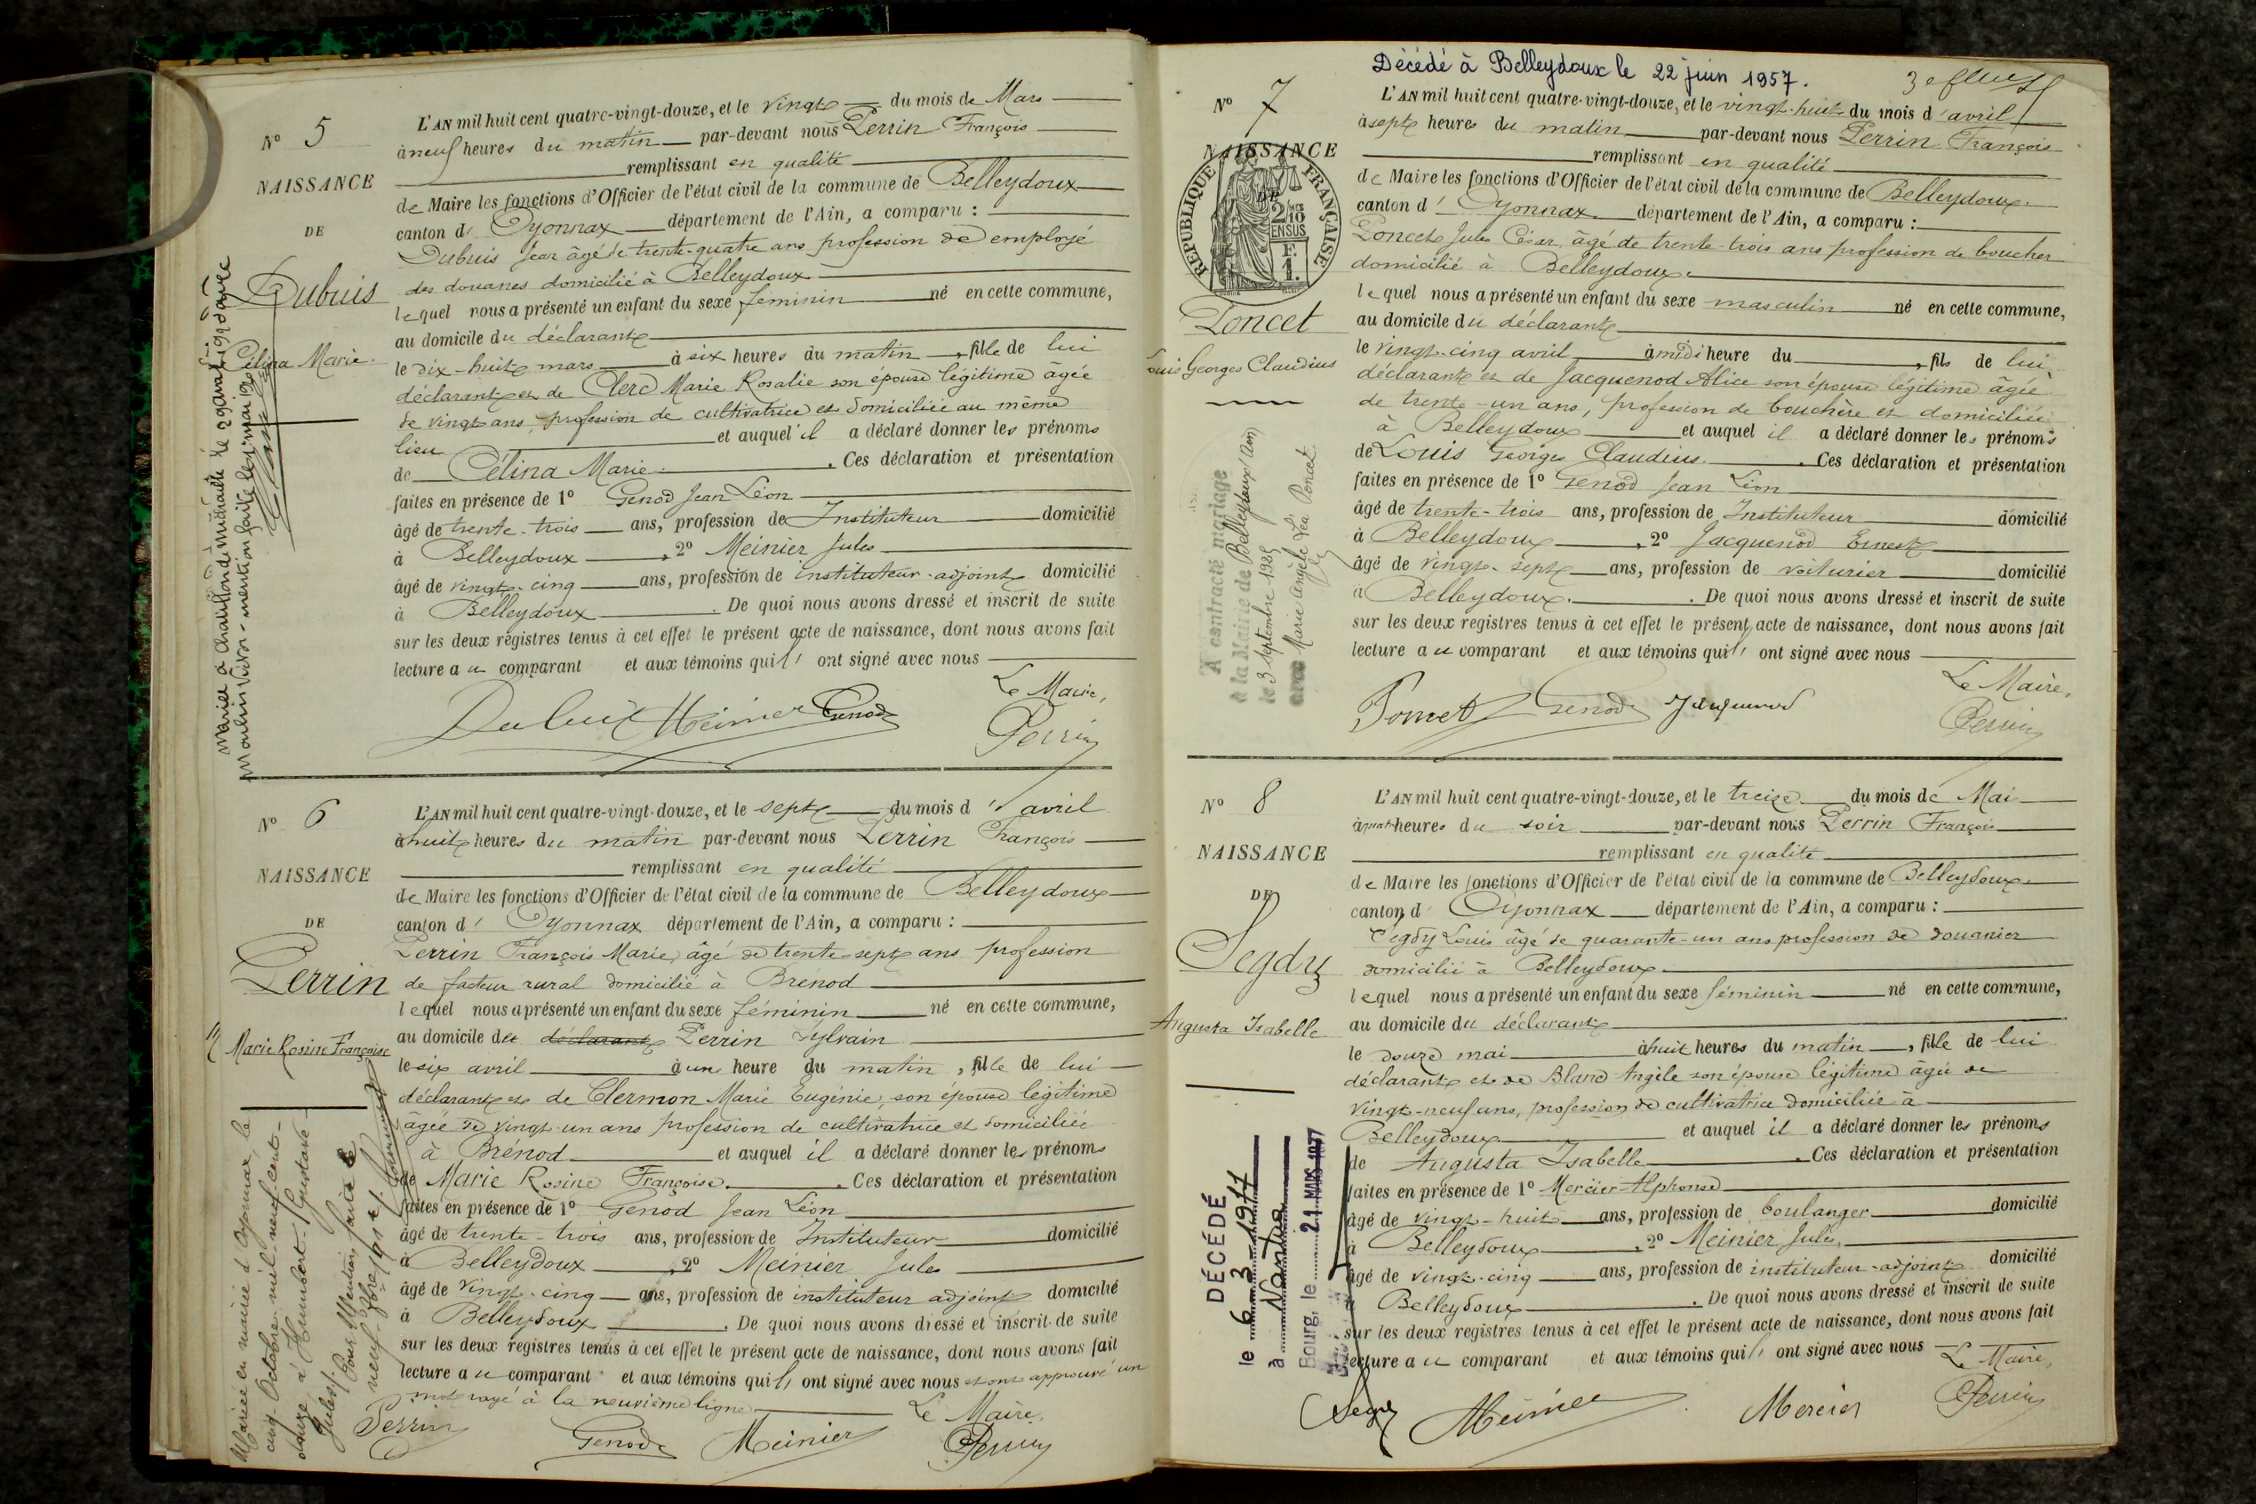 N° 5
NAISSANCE
DE
Dubuis
Célina Marie
L'AN mil huit cent quatre-vingt-douze, et le vingt du mois de Mars
à neuf heures du matin par-devant nous Perrin François
remplissant en qualité
de Maire les fonctions d'Officier de l'état civil de la commune de Belleydoux
canton d' Oyonnax département de l'Ain, a comparu :
Dubuis Jean âgé de trente-quatre ans profession de employé
des douanes domicilié à Belleydoux
lequel nous a présenté un enfant du sexe féminin né en cette commune,
au domicile du déclarant
le dix-huit mars à six heures du matin, fille de lui
déclarant et de Clerc Marie Rosalie son épouse légitime âgée
de vingt ans, profession de cultivatrice et domiciliée au même
lieu et auquel il a déclaré donner les prénoms
de Célina Marie. Ces déclaration et présentation
faites en présence de 1° Genod Jean Léon
âgé de trente-trois ans, profession de Instituteur domicilié
à Belleydoux, 2° Meinier Jules
âgé de vingt-cinq ans, profession de instituteur-adjoint domicilié
à Belleydoux. De quoi nous avons dressé et inscrit de suite
sur les deux registres tenus à cet effet le présent acte de naissance, dont nous avons fait
lecture au comparant et aux témoins qui ont signé avec nous
Le Maire,
Dubuis Meinier Genod
Perrin
N° 6
NAISSANCE
DE
Perrin
Marie Rosine Françoise
Mariée en mairie d'Oyonnax, le
cinq Octobre mil-neuf-cent-
douze à Humbert Gustave
Jules. Pour Mention faite le
L'AN mil huit cent quatre-vingt-douze, et le sept du mois d' avril
à huit heures du matin par-devant nous Perrin François
remplissant en qualité
de Maire les fonctions d'Officier de l'état civil de la commune de Belleydoux
canton d' Oyonnax département de l'Ain, a comparu :
Perrin François Marie, âgé de trente-sept ans profession
de facteur rural domicilié à Brénod
lequel nous a présenté un enfant du sexe féminin né en cette commune,
au domicile de déclarant Perrin Sylvain
le six avril à un heure du matin, fille de lui
déclarant et de Clermon Marie Eugénie, son épouse légitime
âgée de vingt-un ans profession de cultivatrice et domiciliée
à Brénod et auquel il a déclaré donner les prénoms
de Marie Rosine Françoise. Ces déclaration et présentation
faites en présence de 1° Genod Jean Léon
âgé de trente-trois ans, profession de Instituteur domicilié
à Belleydoux, 2° Meinier Jules
âgé de vingt-cinq ans, profession de instituteur adjoint domicilié
à Belleydoux. De quoi nous avons dressé et inscrit de suite
sur les deux registres tenus à cet effet le présent acte de naissance, dont nous avons fait
lecture au comparant et aux témoins qui ont signé avec nous et ont approuvé un
mot rayé à la neuvième ligne
Le Maire,
Perrin Genod Meinier Perrin
Décédé à Belleydoux le 22 juin 1957.
N° 7
NAISSANCE
DE
RÉPUBLIQUE FRANÇAISE
2/10 EN SUS
F. 1.
Poncet
Louis Georges Claudius
A contracté mariage
à la Mairie de Belleydoux (Ain)
avec Marie Angèle Léa Poncet
L'AN mil huit cent quatre-vingt-douze, et le vingt-huit du mois d' avril
à sept heures du matin par-devant nous Perrin François
remplissant en qualité
de Maire les fonctions d'Officier de l'état civil de la commune de Belleydoux
canton d' Oyonnax département de l'Ain, a comparu :
Poncet Jules César, âgé de trente-trois ans profession de boucher
domicilié à Belleydoux
lequel nous a présenté un enfant du sexe masculin né en cette commune,
au domicile du déclarant
le vingt-cinq avril à midi heure du, fils de lui
déclarant et de Jacquenod Alice son épouse légitime âgée
de trente-un ans, profession de bouchère et domiciliée
à Belleydoux et auquel il a déclaré donner les prénoms
de Louis Georges Claudius. Ces déclaration et présentation
faites en présence de 1° Genod Jean Léon
âgé de trente-trois ans, profession de Instituteur domicilié
à Belleydoux, 2° Jacquenod Ernest
âgé de vingt-sept ans, profession de voiturier domicilié
à Belleydoux. De quoi nous avons dressé et inscrit de suite
sur les deux registres tenus à cet effet le présent acte de naissance, dont nous avons fait
lecture au comparant et aux témoins qui ont signé avec nous
Le Maire,
Poncet Genod Jacquenod
Perrin
N° 8
NAISSANCE
DE
Segdy
Augusta Isabelle
DÉCÉDÉ
le 6-3-1977
à Nantua
Bourg, le 21 MARS 1977
L'AN mil huit cent quatre-vingt-douze, et le treize du mois de Mai
à heures du soir par-devant nous Perrin François
remplissant en qualité
de Maire les fonctions d'Officier de l'état civil de la commune de Belleydoux
canton d' Oyonnax département de l'Ain, a comparu :
Segdy Louis âgé de quarante-un ans profession de douanier
domicilié à Belleydoux
lequel nous a présenté un enfant du sexe féminin né en cette commune,
au domicile du déclarant
le douze mai à huit heures du matin, fille de lui
déclarant et de Blanc Angèle son épouse légitime âgée de
vingt-neuf ans, profession de cultivatrice domiciliée à
Belleydoux et auquel il a déclaré donner les prénoms
de Augusta Isabelle. Ces déclaration et présentation
faites en présence de 1° Mercier Alphonse
âgé de vingt-huit ans, profession de boulanger domicilié
à Belleydoux, 2° Meinier Jules
âgé de vingt-cinq ans, profession de instituteur-adjoint domicilié
à Belleydoux. De quoi nous avons dressé et inscrit de suite
sur les deux registres tenus à cet effet le présent acte de naissance, dont nous avons fait
lecture au comparant et aux témoins qui ont signé avec nous
Le Maire,
Segdy Meinier Mercier Perrin